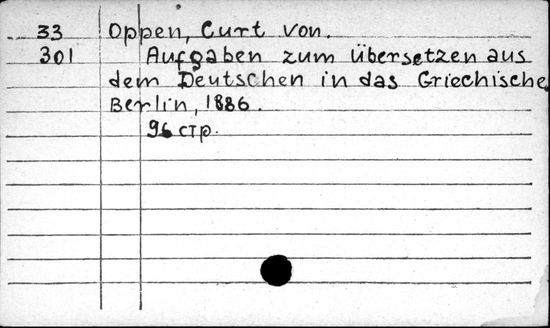 33 Oppen, Curt von.
301 Aufgaben zum Übersetzen aus
dem Deutschen in das Griechische
Berlin, 1886.
96 стр.